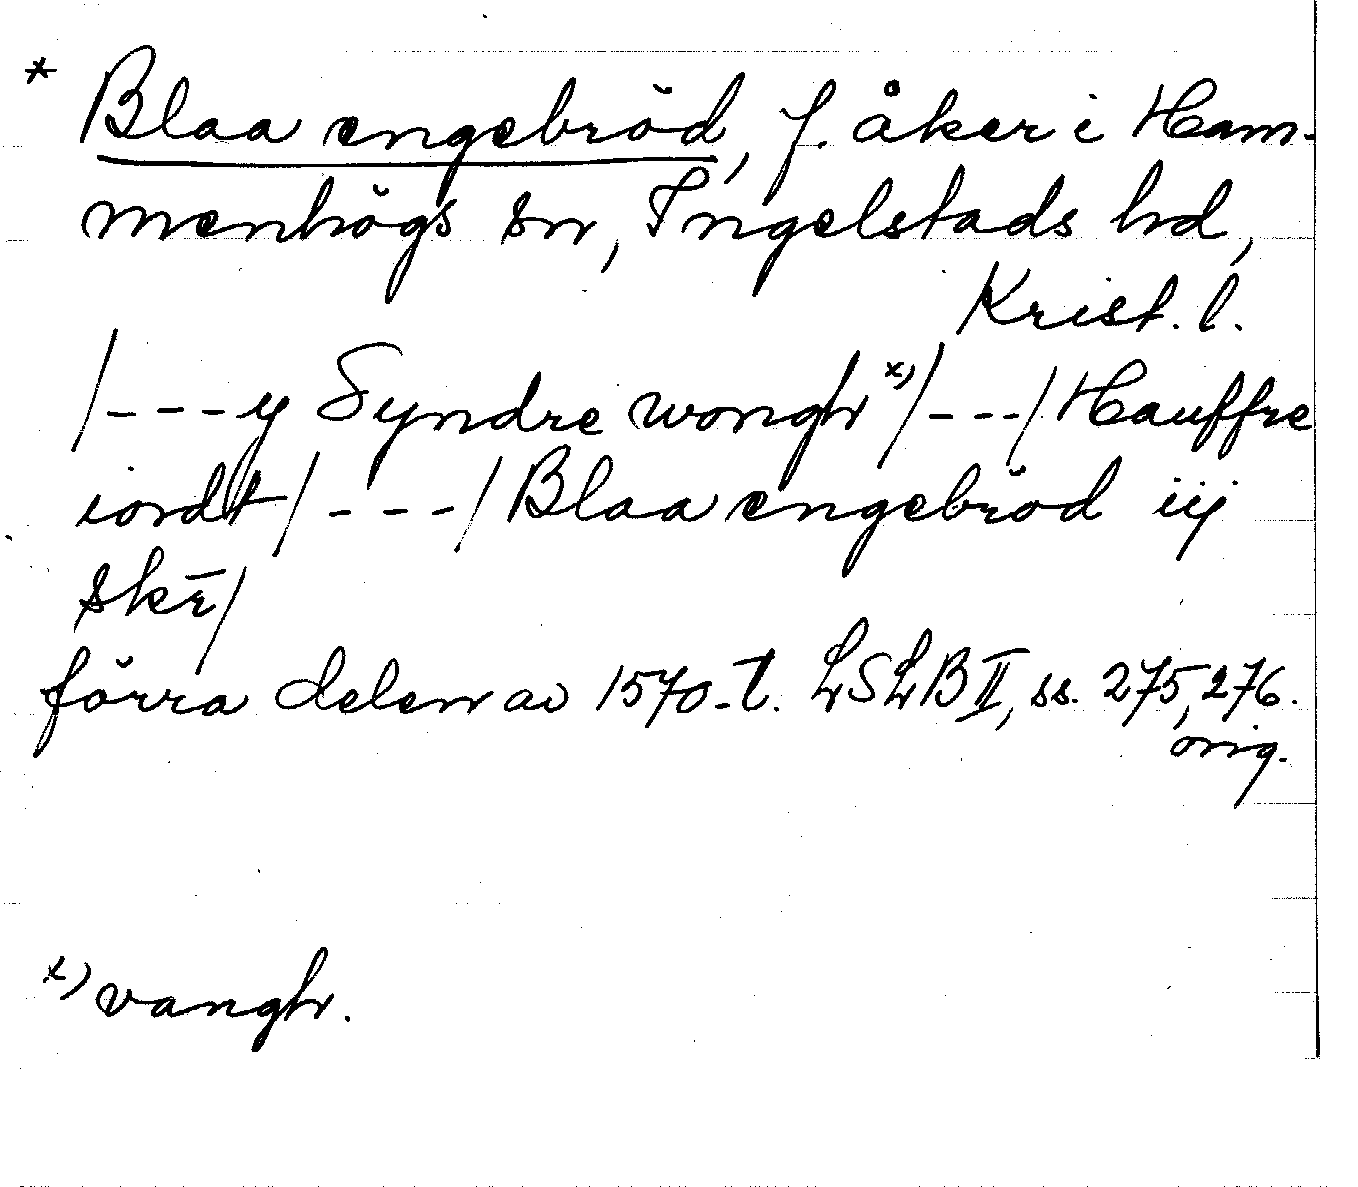 * Blaa engebröd, f. åker i Ham-
menhögs sn, Ingelstads hd,
Krist. l.
/---y Syndre wongh x)/---/Hauffre
iordt/---/Blaa engebröd iij
skr̄/
förra delen av 1570-t. LSLB II, ss. 275, 276.
orig.
x) vangh.